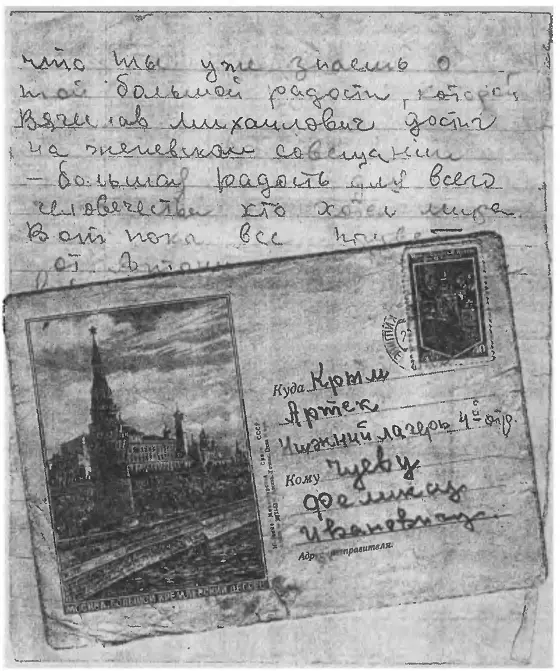 что ты уже знаешь о
той большой радости, которой
Вячеслав Михайлович достиг
на женевском совещании
– большая радость для всего
человечества кто хочет мира.
Вот пока все привет
от
Куда Крым
Артек
Нижний лагерь 4й отр.
Кому Чуеву
Феликсу
Ивановичу
Адрес отправителя:
МОСКВА. БОЛЬШОЙ КРЕМЛЕВСКИЙ ДВОРЕЦ